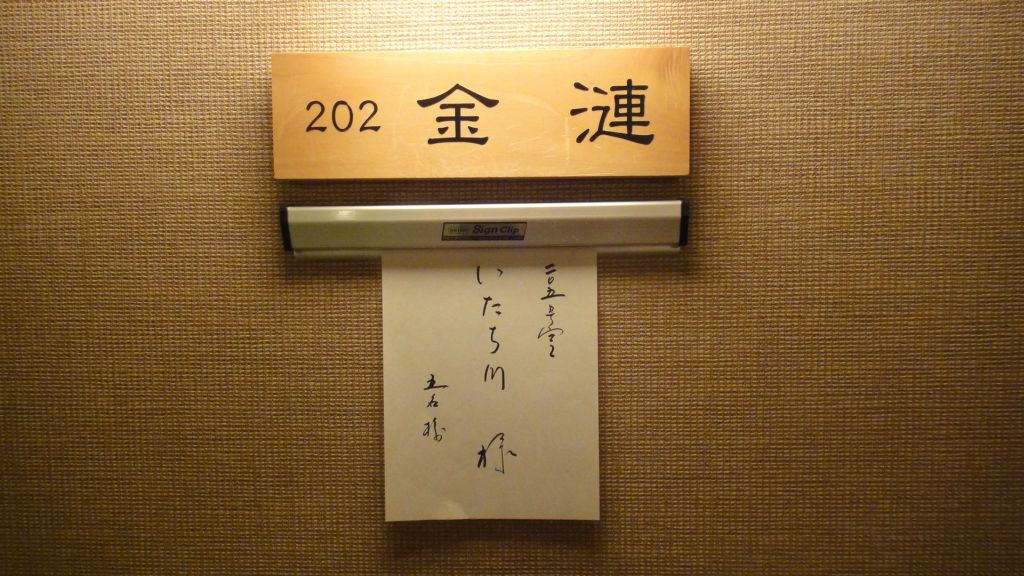 202 金 漣
Sign Clip
二〇五号室
いたち川 様
五名様